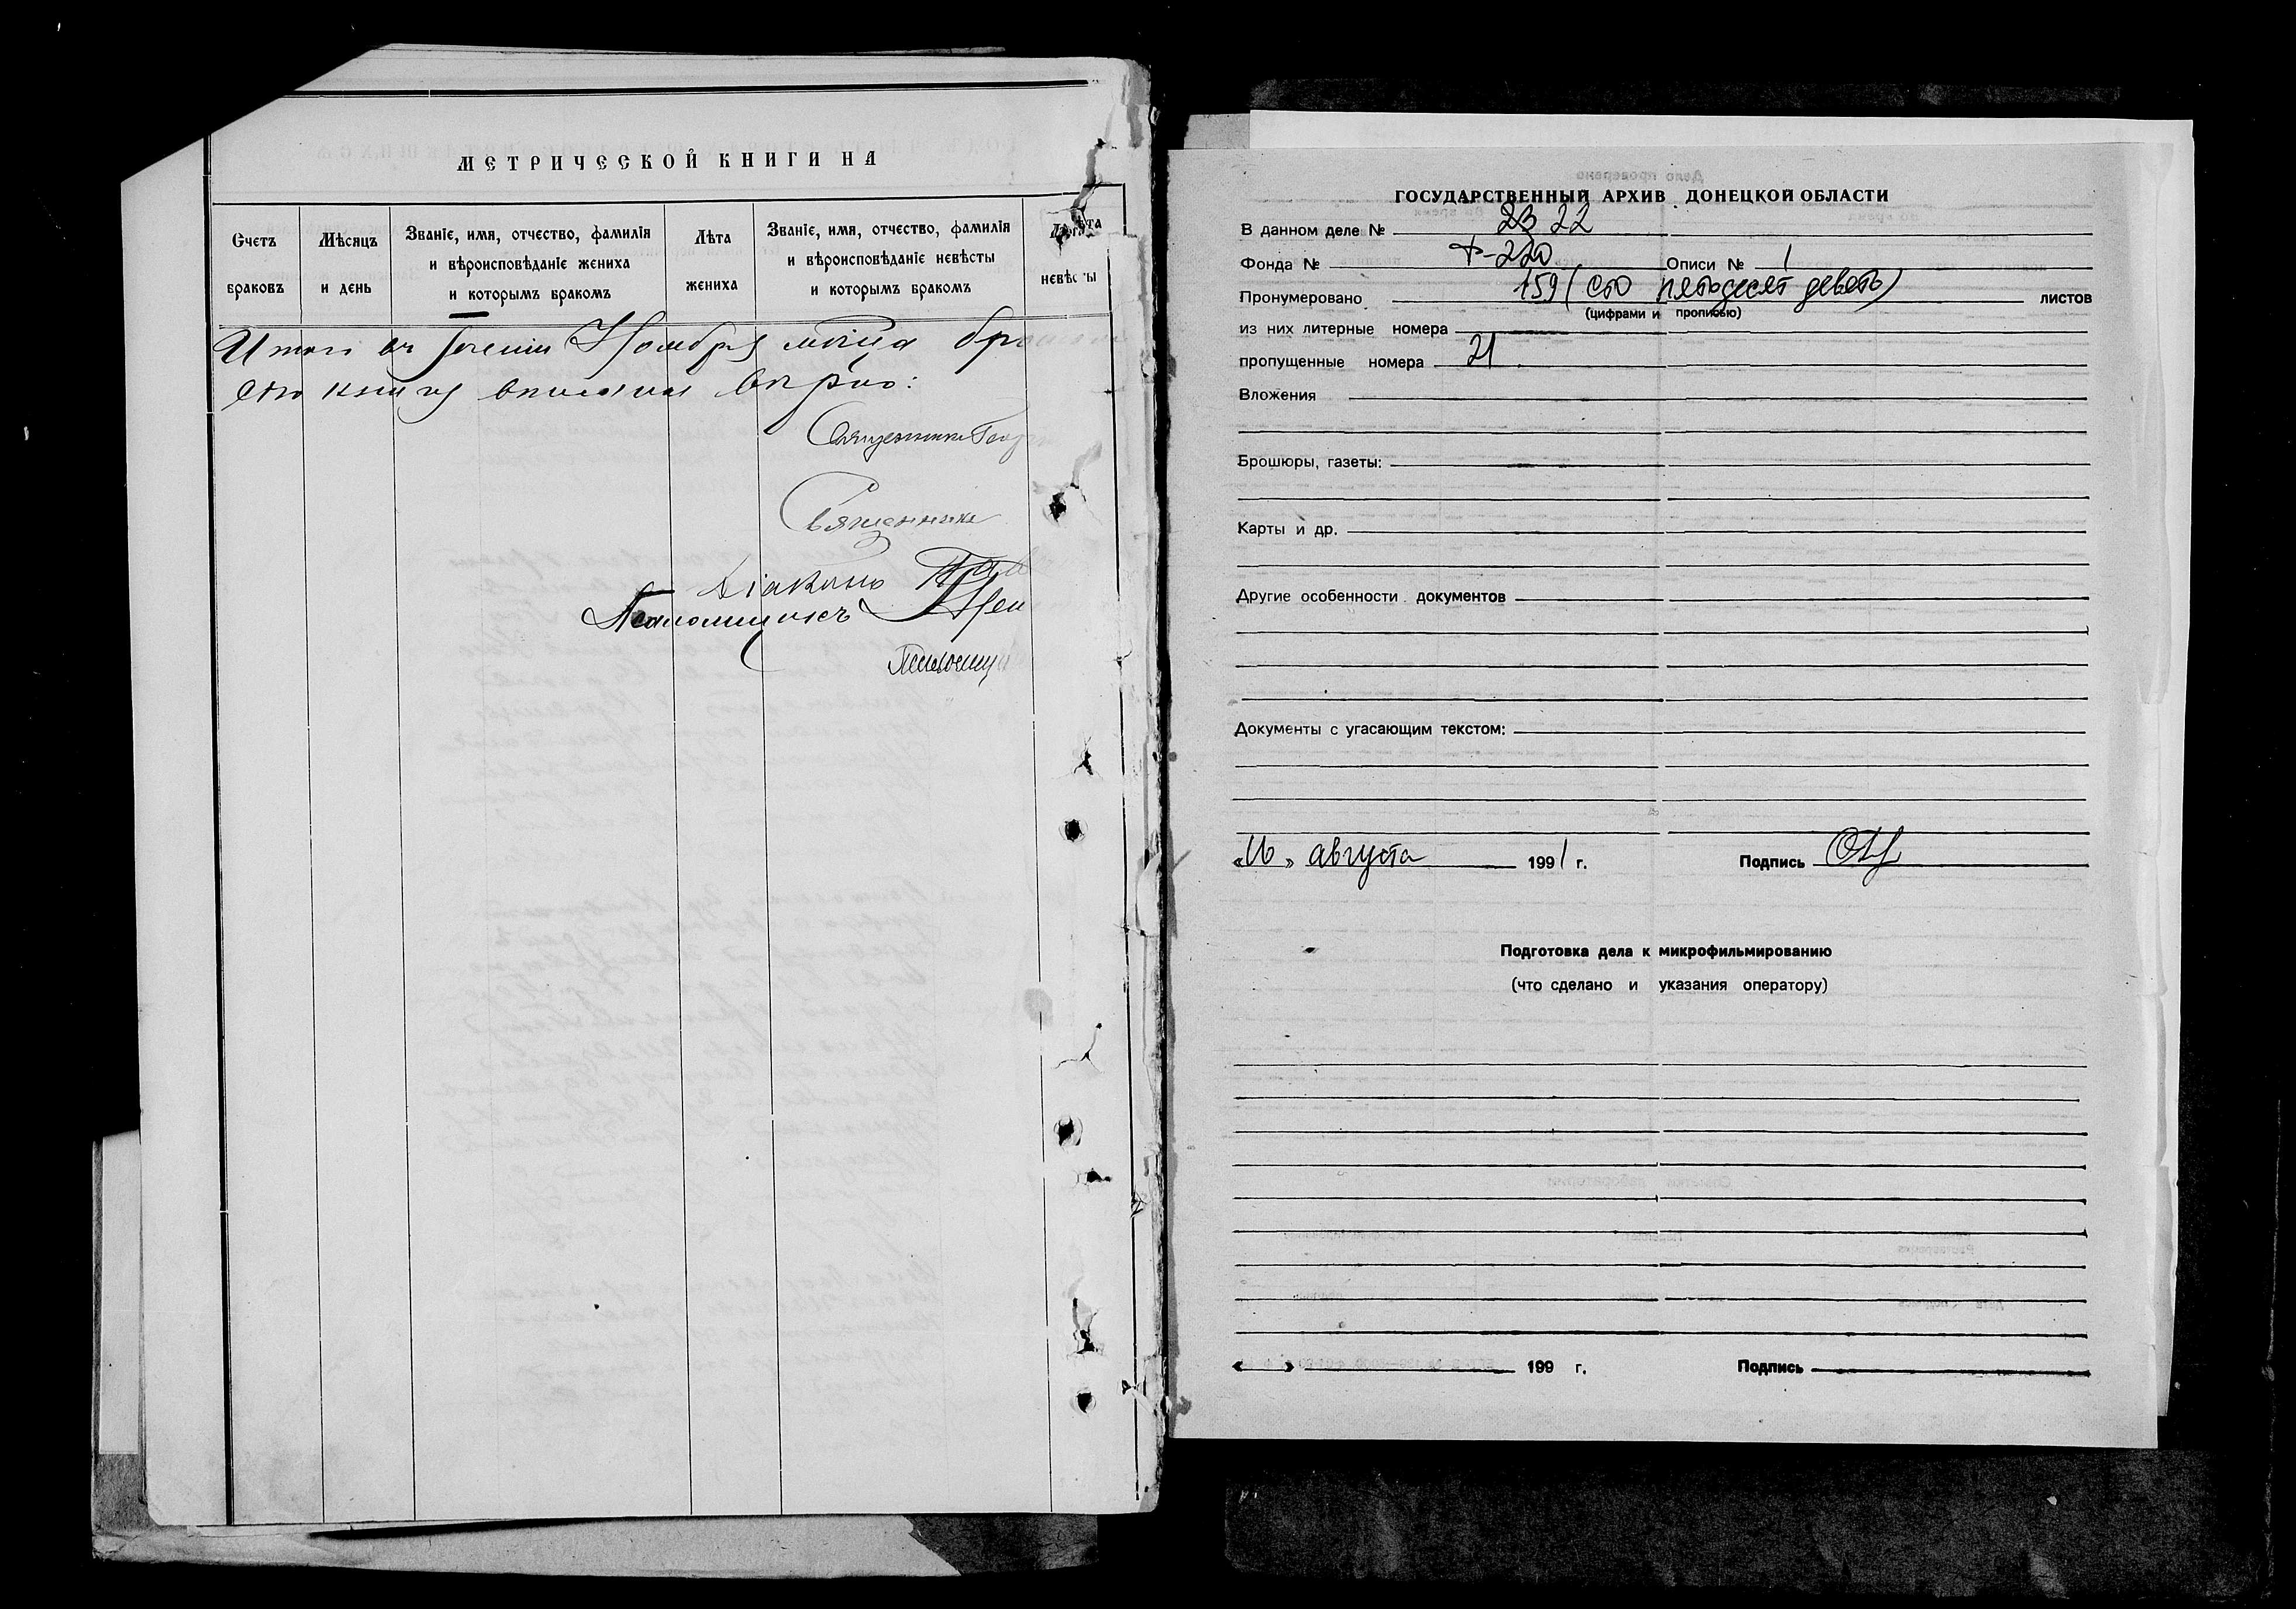 МЕТРИЧЕСКОЙ КНИГИ НА
Счетъ браковъ
Мѣсяцъ и день
Званіе, имя, отчество, фамилія и вѣроисповѣданіе жениха и которымъ бракомъ
Лѣта жениха
Званіе, имя, отчество, фамилія и вѣроисповѣданіе невѣсты и которымъ бракомъ
Лѣта невѣсты
Ноября мѣсяца
книгу вписаны вѣрно:
Священникъ
Священникъ
Діаконъ
Псаломщикъ
Псаломщ
ГОСУДАРСТВЕННЫЙ АРХИВ ДОНЕЦКОЙ ОБЛАСТИ
В данном деле № 22
Фонда № Р-220 Описи № 1
Пронумеровано 159 (сто пятьдесят девять) листов
(цифрами и прописью)
из них литерные номера
пропущенные номера 21
Вложения
Брошюры, газеты:
Карты и др.
Другие особенности документов
Документы с угасающим текстом:
«16» августа 1991 г. Подпись
Подготовка дела к микрофильмированию
(что сделано и указания оператору)
« » 199 г. Подпись